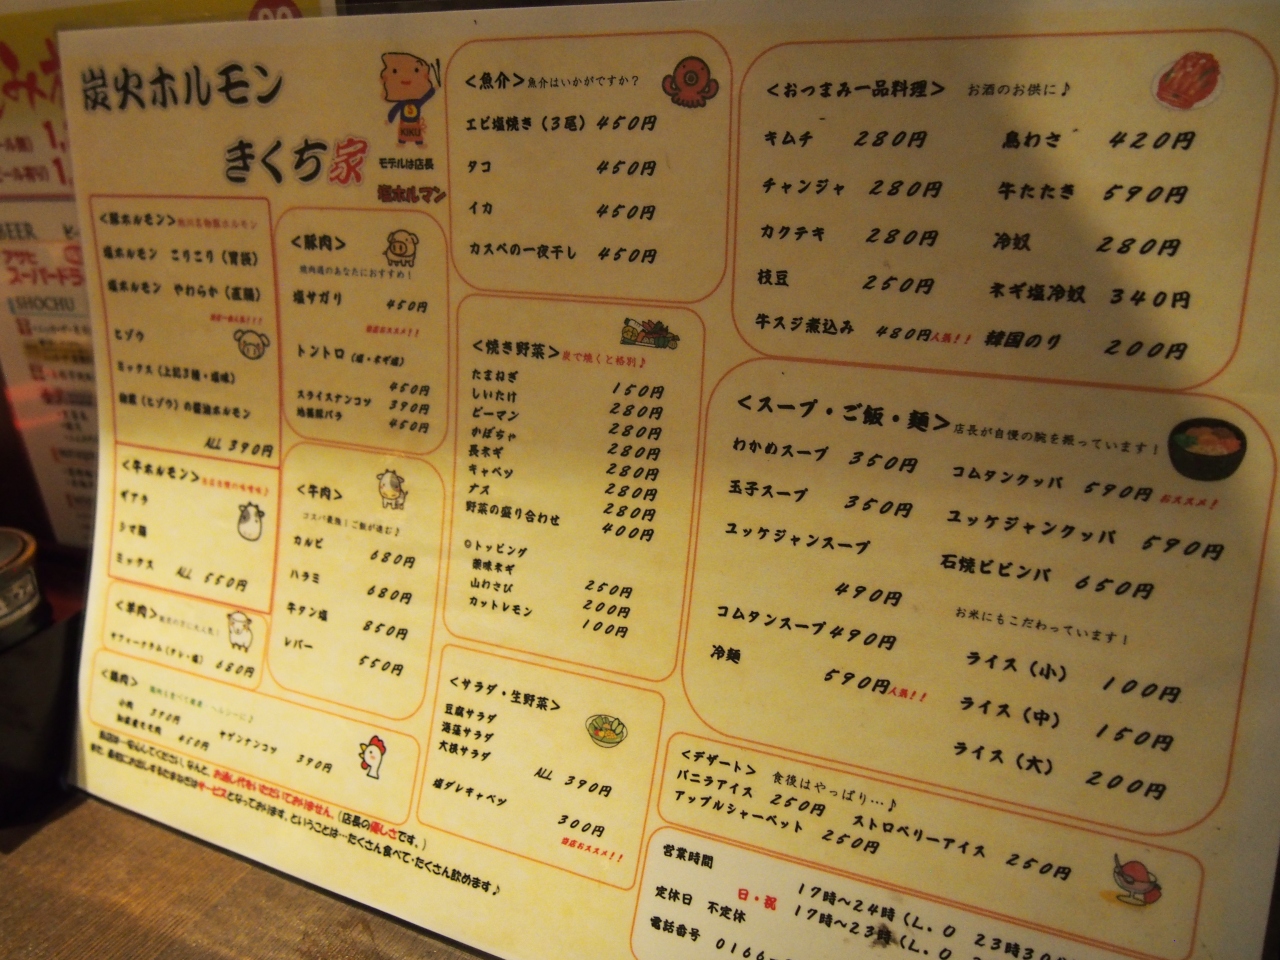 炭火ホルモン
きくち家
KIKU
モデルは店長
塩ホルマン
<豚ホルモン>旭川名物豚ホルモン
塩ホルモン こりこり（胃袋）
塩ホルモン やわらか（直腸）
ヒゾウ
ミックス（上記3種・塩味）
ALL 390円
<牛ホルモン>
ギアラ
シマ腸
ミックス ALL 550円
<羊肉>
680円
<鶏肉>
小肉 390円
ヤゲンナンコツ 390円
450円
<豚肉>
焼肉通のあなたにおすすめ！
塩サガリ 450円
トントロ（塩・ネギ塩）
450円
スライスナンコツ 390円
450円
<牛肉>
コスパ最強！ご飯が進む♪
カルビ 680円
ハラミ 680円
牛タン塩 850円
レバー 550円
当店は…安心してください。なんと、お通し代をいただいておりません。（店長の優しさです。）
また、最初にお出しするたまねぎはサービスとなっております。ということは…たくさん食べて・たくさん飲めます♪
<魚介>魚介はいかがですか？
エビ塩焼き（3尾）450円
タコ 450円
イカ 450円
カスベの一夜干し 450円
<焼き野菜>炭で焼くと格別♪
たまねぎ 150円
しいたけ 280円
ピーマン 280円
かぼちゃ 280円
長ネギ 280円
キャベツ 280円
ナス 280円
野菜の盛り合わせ 280円
400円
◎トッピング
薬味ネギ 250円
山わさび 200円
カットレモン 100円
<サラダ・生野菜>
豆腐サラダ
海藻サラダ
大根サラダ
ALL 390円
塩ダレキャベツ 300円
当店おススメ！！
<おつまみ一品料理> お酒のお供に♪
キムチ 280円
チャンジャ 280円
カクテキ 280円
枝豆 250円
牛スジ煮込み 480円人気！！
鳥わさ 420円
牛たたき 590円
冷奴 280円
ネギ塩冷奴 340円
韓国のり 200円
<スープ・ご飯・麺>店長が自慢の腕を振っています！
わかめスープ 350円
玉子スープ 350円
ユッケジャンスープ
490円
コムタンスープ490円
冷麺
590円人気！！
コムタンクッパ 590円おススメ！
ユッケジャンクッパ 590円
石焼ビビンバ 650円
お米にもこだわっています！
ライス（小） 100円
ライス（中） 150円
ライス（大） 200円
<デザート> 食後はやっぱり…♪
バニラアイス 250円
ストロベリーアイス 250円
アップルシャーベット 250円
営業時間 17時～24時（L.O 23時30
日・祝 17時～23時（L.O
定休日 不定休
電話番号 0166-
BEER
アサヒ
スーパードラ
SHOCHU